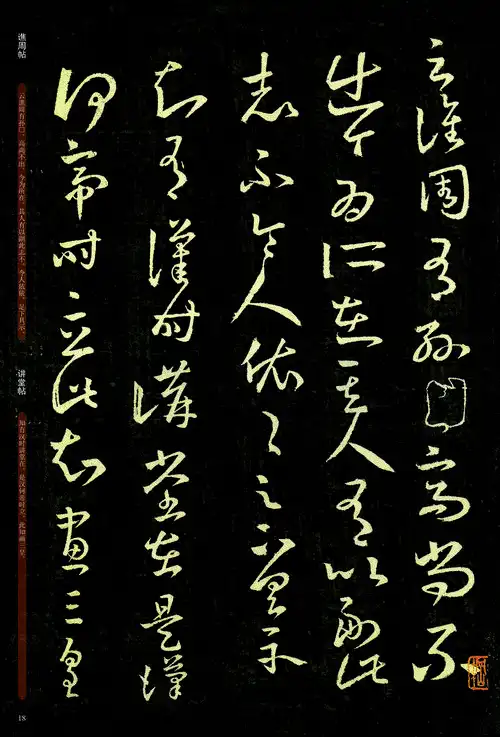 云譙周有孫高尚不
出今為所在其人有以副此
志不令人依〻足下具示
知有漢時講堂在是漢
何帝時立此知畫三皇
谯周帖
云谯周有孙□，高尚不出，今为所在，其人有以副此志不，令人依依，足下具示。
讲堂帖
知有汉时讲堂在，是汉何帝时立，此知画三皇
18